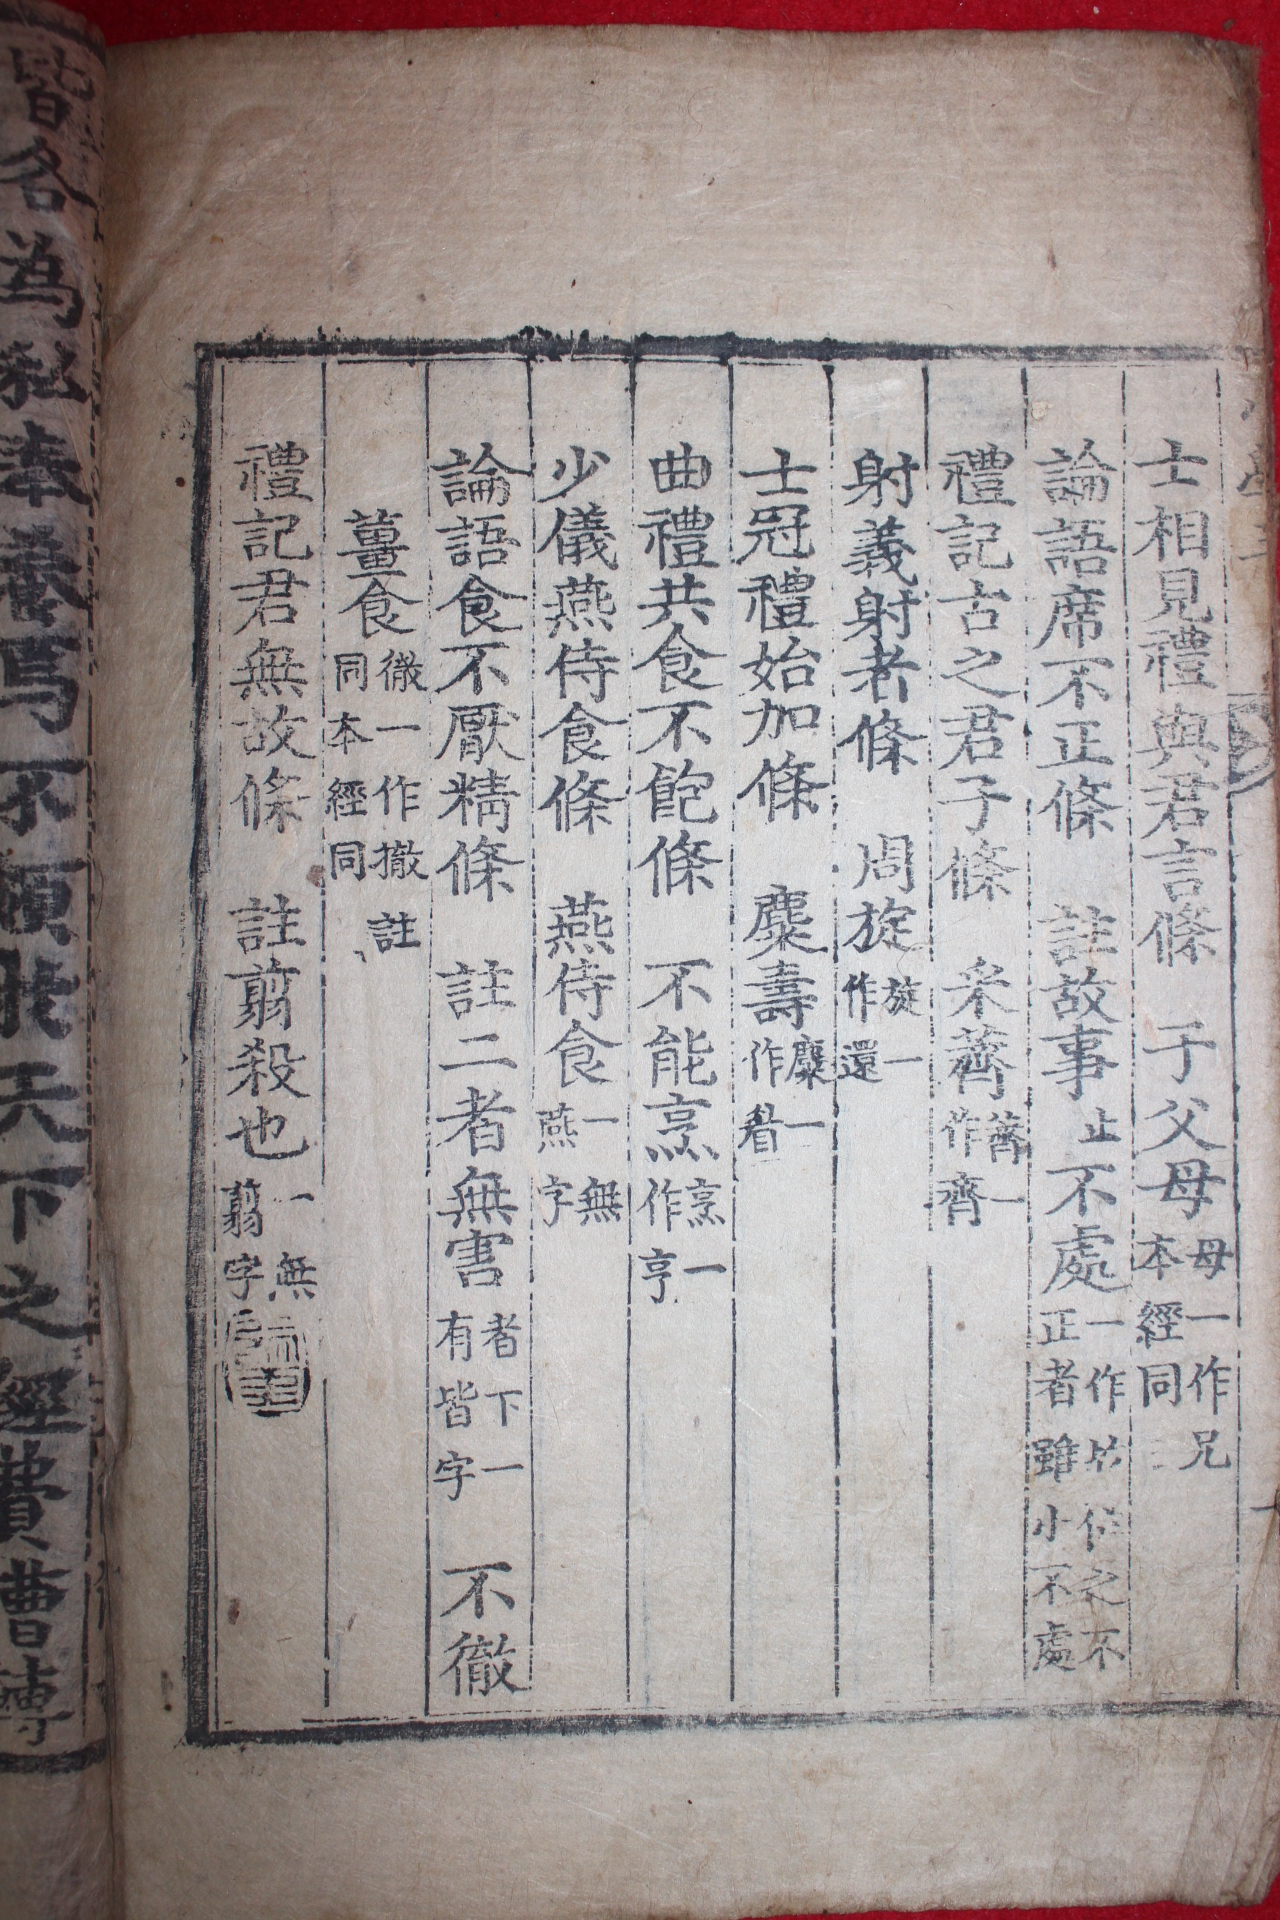 士相見禮與君言條　于父母母一作兄本經同
論語席不正條　註故事止不處一作於位之不正者雖小不處
禮記古之君子條　采薺薺一作齊
射義射者條　周旋旋一作還
士冠禮始加條　麋壽麋一作眉
曲禮共食不飽條　不能烹烹一作亨
少儀燕侍食條　燕侍食一無燕字
論語食不厭精條　註二者無害者下一有皆字　不徹
薑食徹一作撤註同本經同
禮記君無故條　註翦殺也一無翦字
皆名為私奉養焉不領於天下之經費曹轉